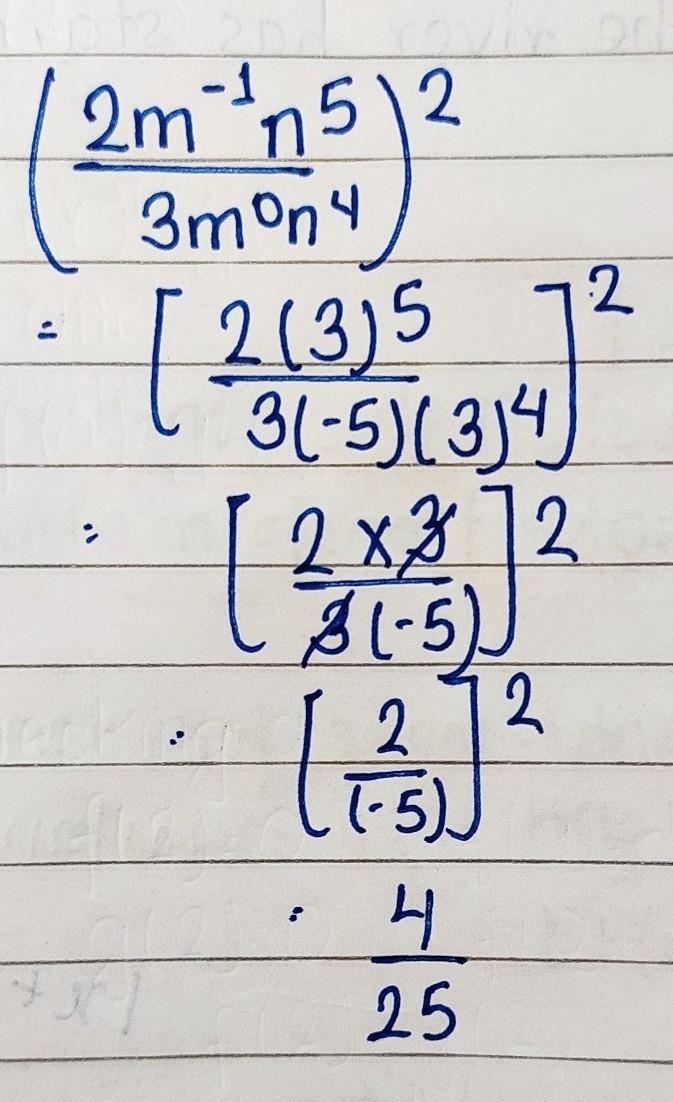 (2m⁻¹n⁵/3m⁰n⁴)²
= [2(3)⁵/3(-5)(3)⁴]²
= [2×3/3(-5)]²
= [2/(-5)]²
= 4/25